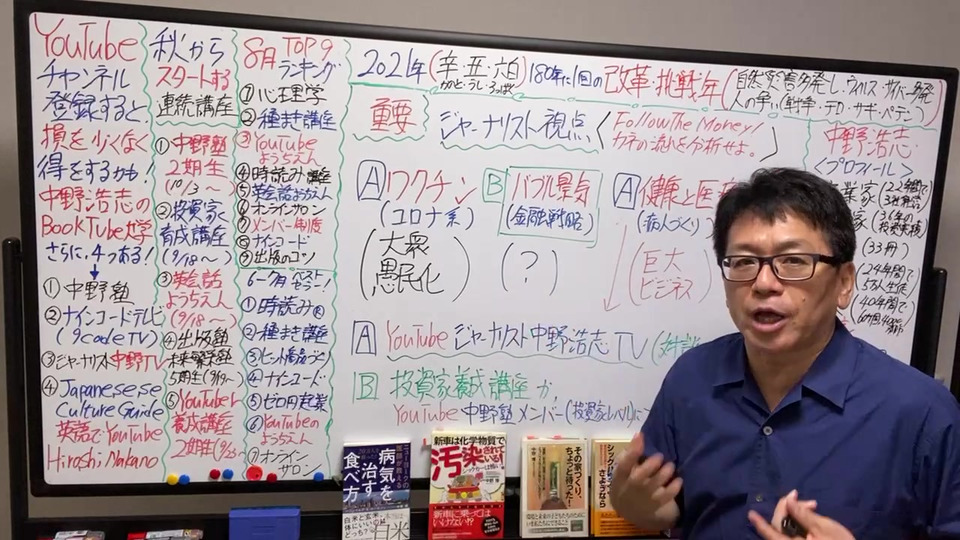 YouTube
チャンネル
登録すると
損を少なく
得をするかも!
中野浩志の
BookTube大学
さらに、4つある!
① 中野塾
② ナインコードテレビ
(9code TV)
③ ジャーナリスト中野TV
④ Japanese
Culture Guide
英語でYouTube
Hiroshi Nakano
秋から
スタートする
連続講座
① 中野塾
2期生
(10/3～)
② 投資家
育成講座
(9/18～)
③ 英会話
ようちえん
(9/18～)
④ 出版塾
5期生(9/19～
⑤ YouTuber
養成講座
2期生(9/23～
8月 TOP9
ランキング
① 心理学
② 種まき講座
③ YouTube
ようちえん
④ 時読み講座
⑤ 英会話ようちえん
⑥ オンラインサロン
⑦ メンバー制度
⑧ ナインコード
⑨ 出版のコツ
① 時読み®
② 種まき講座
③ ヒント商品づくり
④ ナインコード
⑤ ゼロ円起業
⑥ YouTubeの
ようちえん
⑦ オンライン
サロン
2021年(辛・丑・六白)180年に1回の改革・挑戦の年
かのと・うし・ろっぱく
自然災害多発し、ウイルス サイバー多発
人の争い(戦争・テロ・サギ・ペテン)
重要
ジャーナリスト視点
Follow The Money!
カネの流れを分析せよ。
A ワクチン
(コロナ系)
(大衆
愚民化)
B バブル景気
(金融戦略)
(?)
A 健康と医
(病人づくり)
(巨大
ビジネス)
中野浩志
<プロフィール>
業家(22年間で
家(36年の
(33冊)
(24年間で
5万人生徒
(40年間で
A YouTube ジャーナリスト中野浩志TV (対談
B 投資家養成講座か、
YouTube 中野塾メンバー(投資家レベル)に
ニューヨークの
医師が教える
病気を
治す
食べ方
白米と玄米、
体にいいのは
どっち?
白米
新車は化学物質で
汚染されている
シックカーは怖い
新車に乗っては
いけない!?
その家づくり、
ちょっと待った!
さようなら